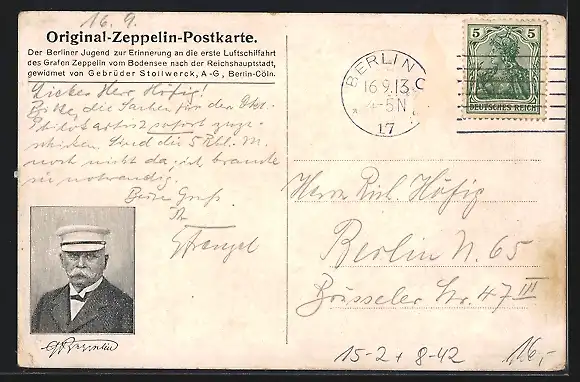 16. 9.
Original-Zeppelin-Postkarte.
Der Berliner Jugend zur Erinnerung an die erste Luftschiffahrt
des Grafen Zeppelin vom Bodensee nach der Reichshauptstadt,
gewidmet von Gebrüder Stollwerck, A-G, Berlin-Cöln.
Lieber Herr Höfig!
Bitte, die Sachen für den
sofort
schicken. Sind die 5 M.
noch nicht da; ich brauche
sie notwendig.
Besten Gruß
Ihr
Frenzel
BERLIN C
16.9.13
4-5N
* 17
5 5
DEUTSCHES REICH
Herrn Rich. Höfig
Berlin N. 65
Brüsseler Str. 47 III
15-2 + 8-42
16,-